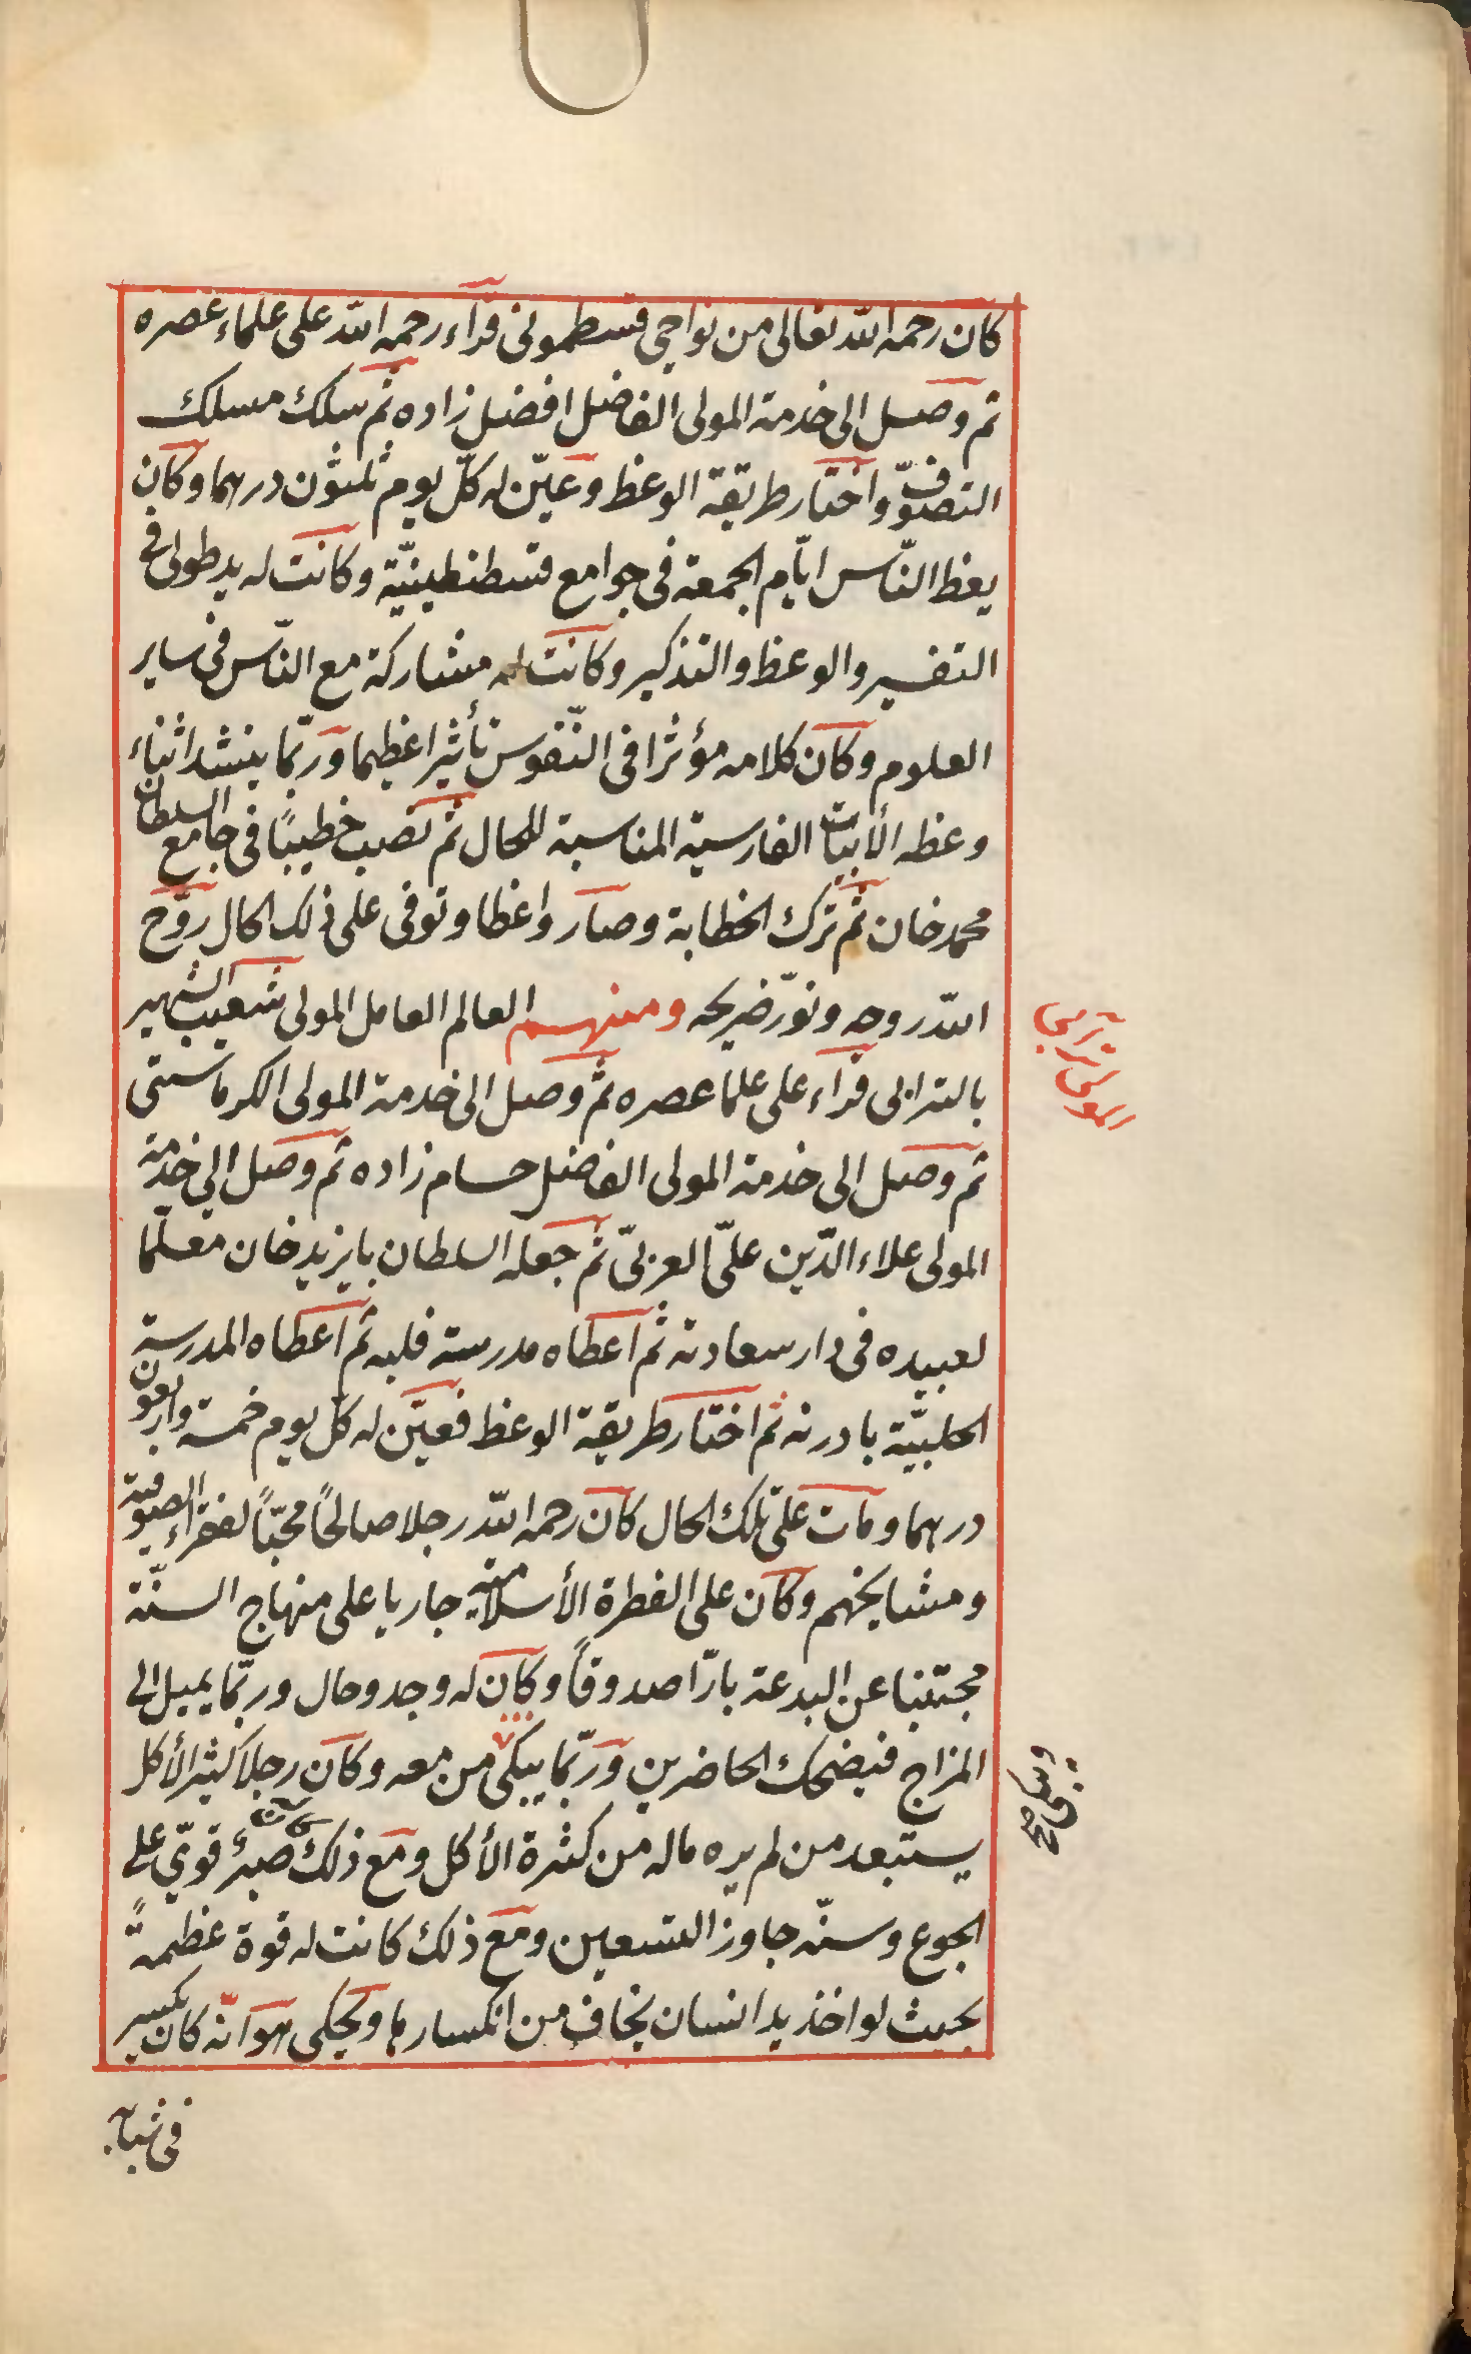 كان رحمه الله تعالى من نواحى قسطمونى قرأء رحمه الله على علماء عصره
ثم وصل الى خدمة المولى الفاضل افضل زاده ثم سلك مسلك
التصوّف واختار طريقة الوعظ وعيّن له كلّ يوم ثلثون درهما وكان
يعظ النّاس ايّام الجمعة فى جوامع قسطنطينيّة وكانت له يد طولى فى
التفسير والوعظ والتذكير وكانت له مشاركة مع النّاس فى ساير
العلوم وكان كلامه مؤثرا فى النّفوس تأثيرا عظيما وربّما ينشد اثناء
وعظه الأبيات الفارسية المناسبة للحال ثم نصب خطيبًا فى جامع السلطان
محمد خان ثم ترك الخطابة وصار واعظا وتوفى على ذلك الحال روّح
الله روحه ونوّر ضريحه ومنهم العالم العامل المولى شعيب الشهير
بالترابى قرأء على علما عصره ثم وصل الى خدمة المولى الكرماستى
ثم وصل الى خدمة المولى الفاضل حسام زاده ثم وصل الى خدمة
المولى علاء الدّين علىّ العربىّ ثم جعله السلطان بايزيد خان معلّما
لعبيده فى دار سعادته ثم اعطاه مدرسة فلبه ثم اعطاه المدرسة
الحلبيّة بادرنه ثم اختار طريقة الوعظ فعيّن له كلّ يوم خمسة واربعون
درهما ومات على تلك الحال كان رحمه الله رجلا صالحًا محبّاً لفقراء الصوفية
ومشايخهم وكان على الفطرة الأسلامية جاريا على منهاج السنّة
مجتنبا عن البدعة بارّا صدوقاً وكان له وجد وحال وربّما يميل الى
المزاح فيضحك الحاضرين وربّما يبكى من معه وكان رجلا كثير الأكل
يستبعد من لم يره ماله من كثرة الأكل ومع ذلك كان صبره قوىّ على
الجوع وسنّه جاوز التسعين ومع ذلك كانت له قوة عظيمةً
بحيث لو اخذ يد انسان يخاف من انكسارها ويحكى هو انّه كان يكسير
المولى ترابى
فى شبا.